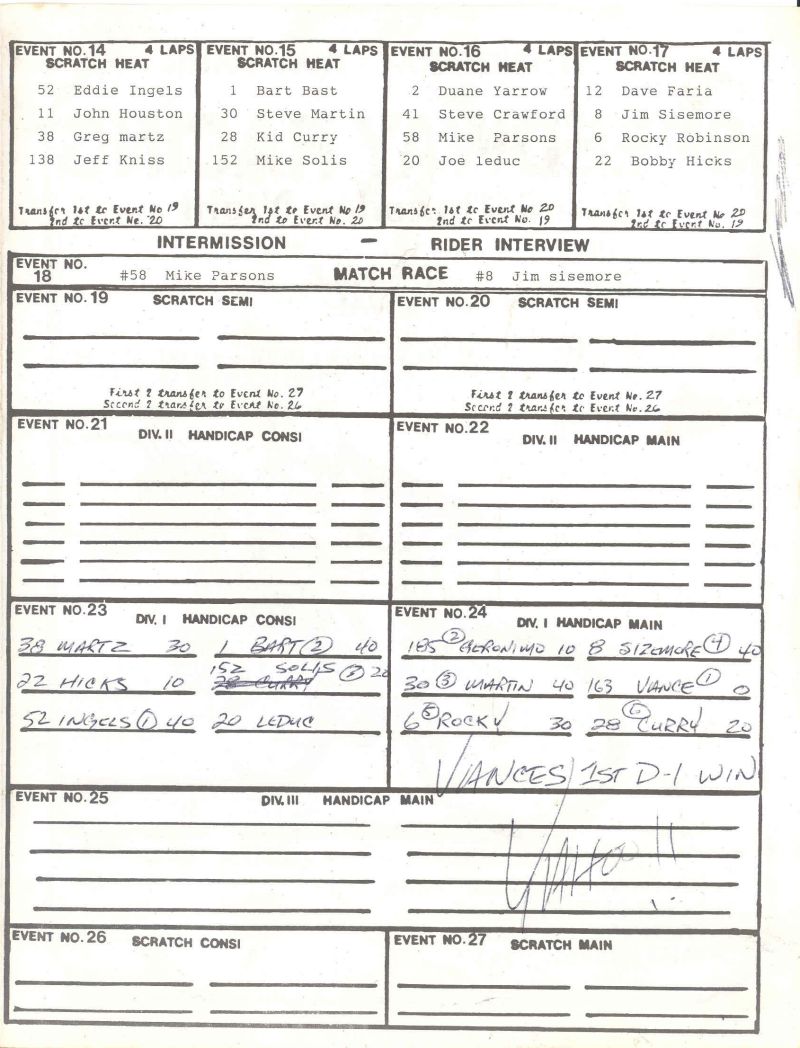 EVENT NO.14 4 LAPS
SCRATCH HEAT
52 Eddie Ingels
11 John Houston
38 Greg martz
138 Jeff Kniss
Transfer 1st to Event No 19
2nd to Event No. 20
EVENT NO.15 4 LAPS
SCRATCH HEAT
1 Bart Bast
30 Steve Martin
28 Kid Curry
152 Mike Solis
Transfer 1st to Event No 19
2nd to Event No. 20
EVENT NO.16 4 LAPS
SCRATCH HEAT
2 Duane Yarrow
41 Steve Crawford
58 Mike Parsons
20 Joe leduc
Transfer 1st to Event No 20
2nd to Event No. 19
EVENT NO.17 4 LAPS
SCRATCH HEAT
12 Dave Faria
8 Jim Sisemore
6 Rocky Robinson
22 Bobby Hicks
Transfer 1st to Event No 20
2nd to Event No. 19
INTERMISSION - RIDER INTERVIEW
EVENT NO. 18 #58 Mike Parsons MATCH RACE #8 Jim sisemore
EVENT NO.19 SCRATCH SEMI
First 2 transfer to Event No. 27
Second 2 transfer to Event No. 26
EVENT NO.20 SCRATCH SEMI
First 2 transfer to Event No. 27
Second 2 transfer to Event No. 26
EVENT NO.21
DIV. II HANDICAP CONSI
EVENT NO.22
DIV. II HANDICAP MAIN
EVENT NO.23
DIV. I HANDICAP CONSI
38 MARTZ 30 1 BART 2 40
152 SOLIS 3 20
22 HICKS 10 28 CURRY
52 INGELS 1 40 20 LEDUC
EVENT NO.24
DIV. I HANDICAP MAIN
185 2 GERONIMO 10 8 SIZEMORE 4 40
30 3 MARTIN 40 163 VANCE 1 0
6 5 ROCKY 30 28 6 CURRY 20
VANCES 1ST D-1 WIN
YAHOO!!
EVENT NO.25 DIV. III HANDICAP MAIN
EVENT NO.26 SCRATCH CONSI
EVENT NO.27 SCRATCH MAIN